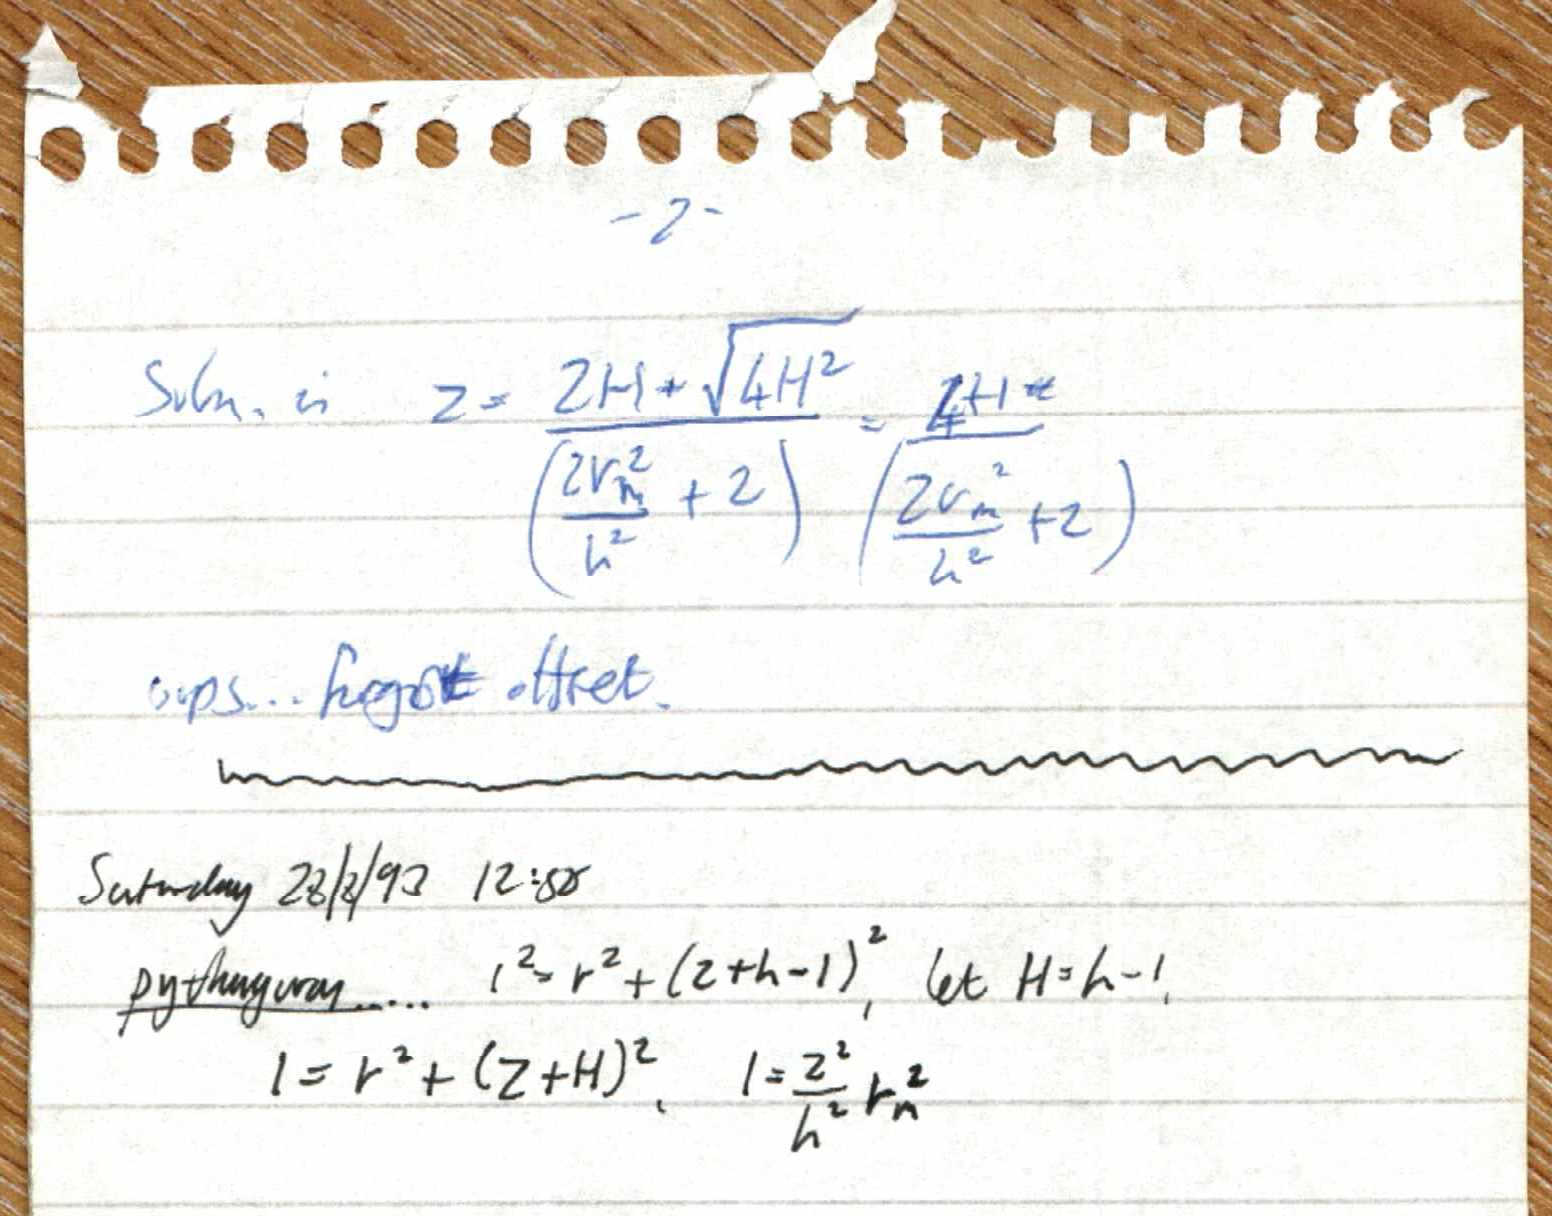 -2-
Soln. is z = (2H + √4H²) / (2rₘ²/h² + 2) = 4H / (2rₘ²/h² + 2)
oops... forgot offset.
Saturday 28/8/93 12:
pythagoras..... 1² = r² + (z+h-1)², let H = h-1.
1 = r² + (z+H)². 1 = z²/h² rₘ²